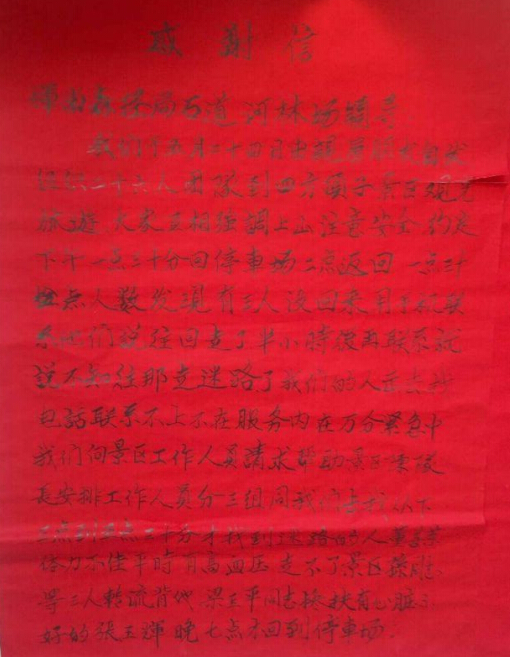 感谢信
桦南森径局石道河林场领导
我们于五月二十四日由观景朋友自发
组织二十六人团队到四方顶子景区观光
旅遊 大家互相强调上山注意安全 约定
下午一点三十分回停車场二点返回 一点三十
点人数发现有三人没回来用手机联
系他们说往回走了半小時後再联系就
说不知往那走迷路了我们的人
电話联系不上不在服务内在万分紧急中
我们向景区工作人員請求帮助景区
長安排工作人员分三组同我们去找从下
二点到五点二十分才找到迷路的人
体力不佳平時有高血压 走不了景区
等三人轮流背他 梁玉平同志搀扶有心脏不
好的张玉輝晚七点才回到停車场.